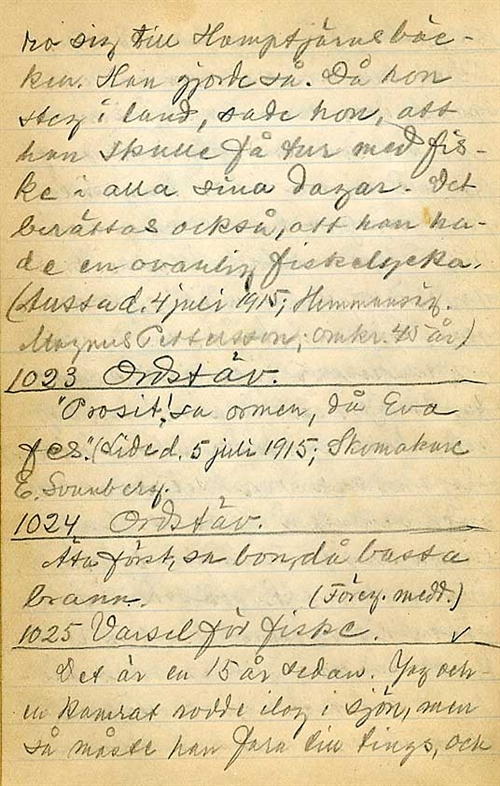 ro sig till Hamptjärnsbäc-
ken. Han gjorde så. Då hon
steg i land, sade hon, att
han skulle få tur med fis-
ke i alla sina dagar. Det
berättas också, att han ha-
de en ovanlig fiskelycka.
d. 4 juli 1915; Hemmansäg.
Magnus Pettersson; omkr. 45 år)
1023 Ordstäv.
"Prosit! sa ormen, då Eva
fes." (Lide d. 5 juli 1915; Skomakare
E. Svanberg.
1024 Ordstäv.
Äta först, sa bon, då bassa
brann. (Föreg. medd.)
1025 Varsel för fiske. ✓
Det är en 15 år sedan. Jag och
en kamrat rodde ilag i sjön, men
så måste han fara till tings, och